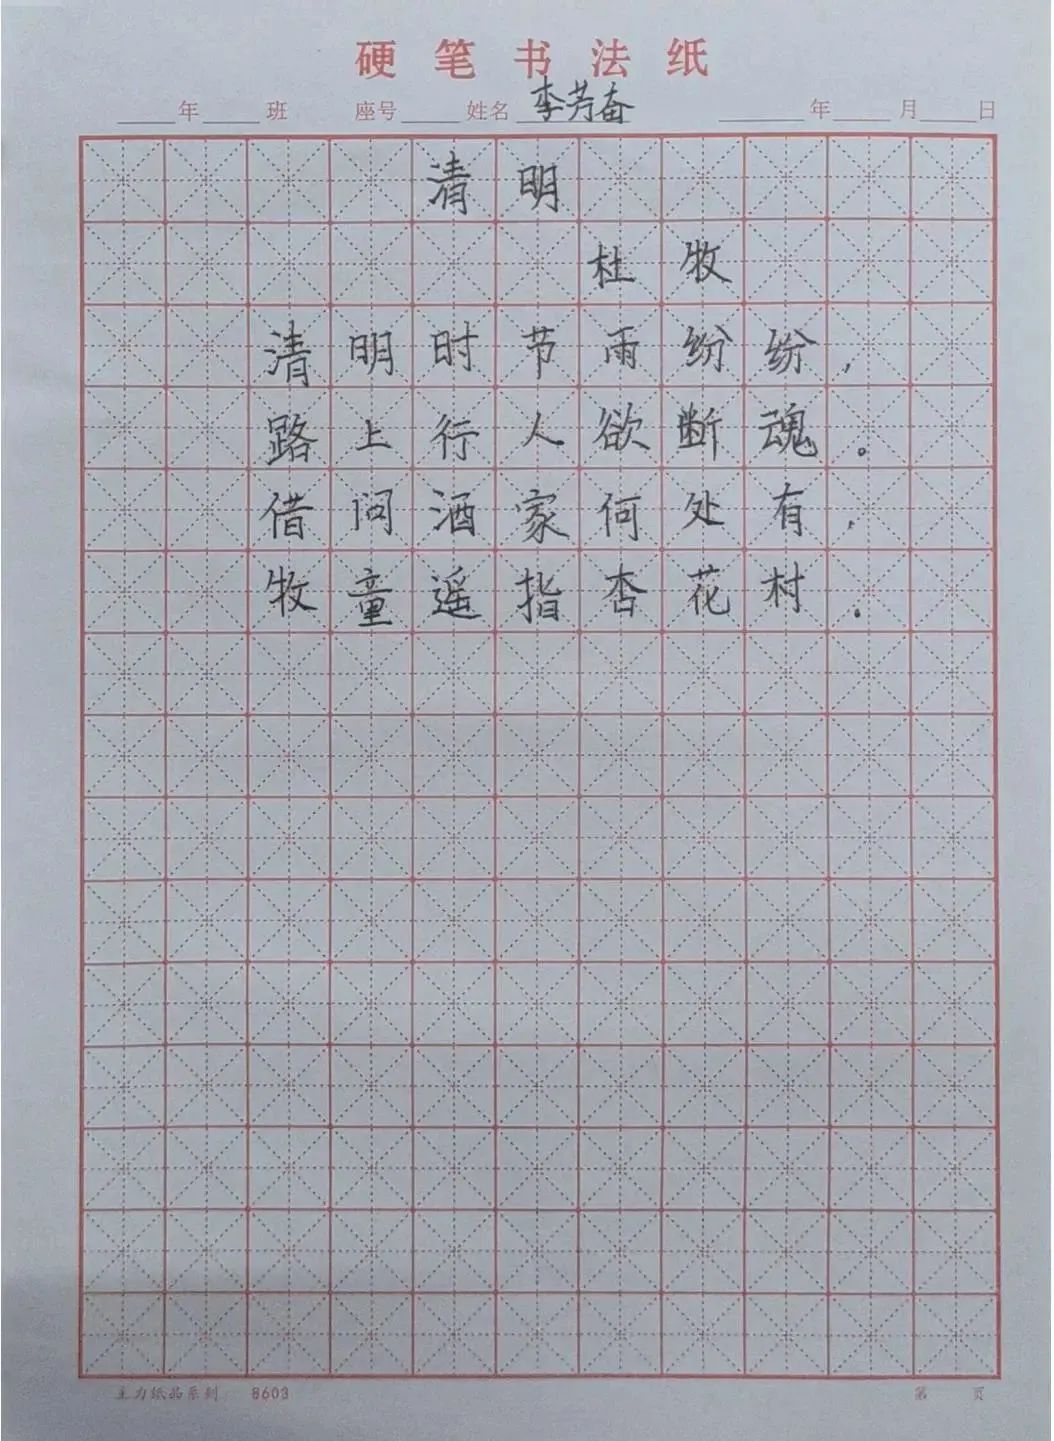 硬笔书法纸
年 班 座号 姓名 李芳奋 年 月 日
清明
杜牧
清明时节雨纷纷,
路上行人欲断魂。
借问酒家何处有,
牧童遥指杏花村.
主力纸品系列 8603 第 页